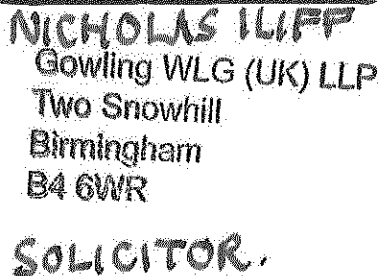 NICHOLAS ILIFF
Gowling WLG (UK) LLP
Two Snowhill
Birmingham
B4 6WR
SOLICITOR.